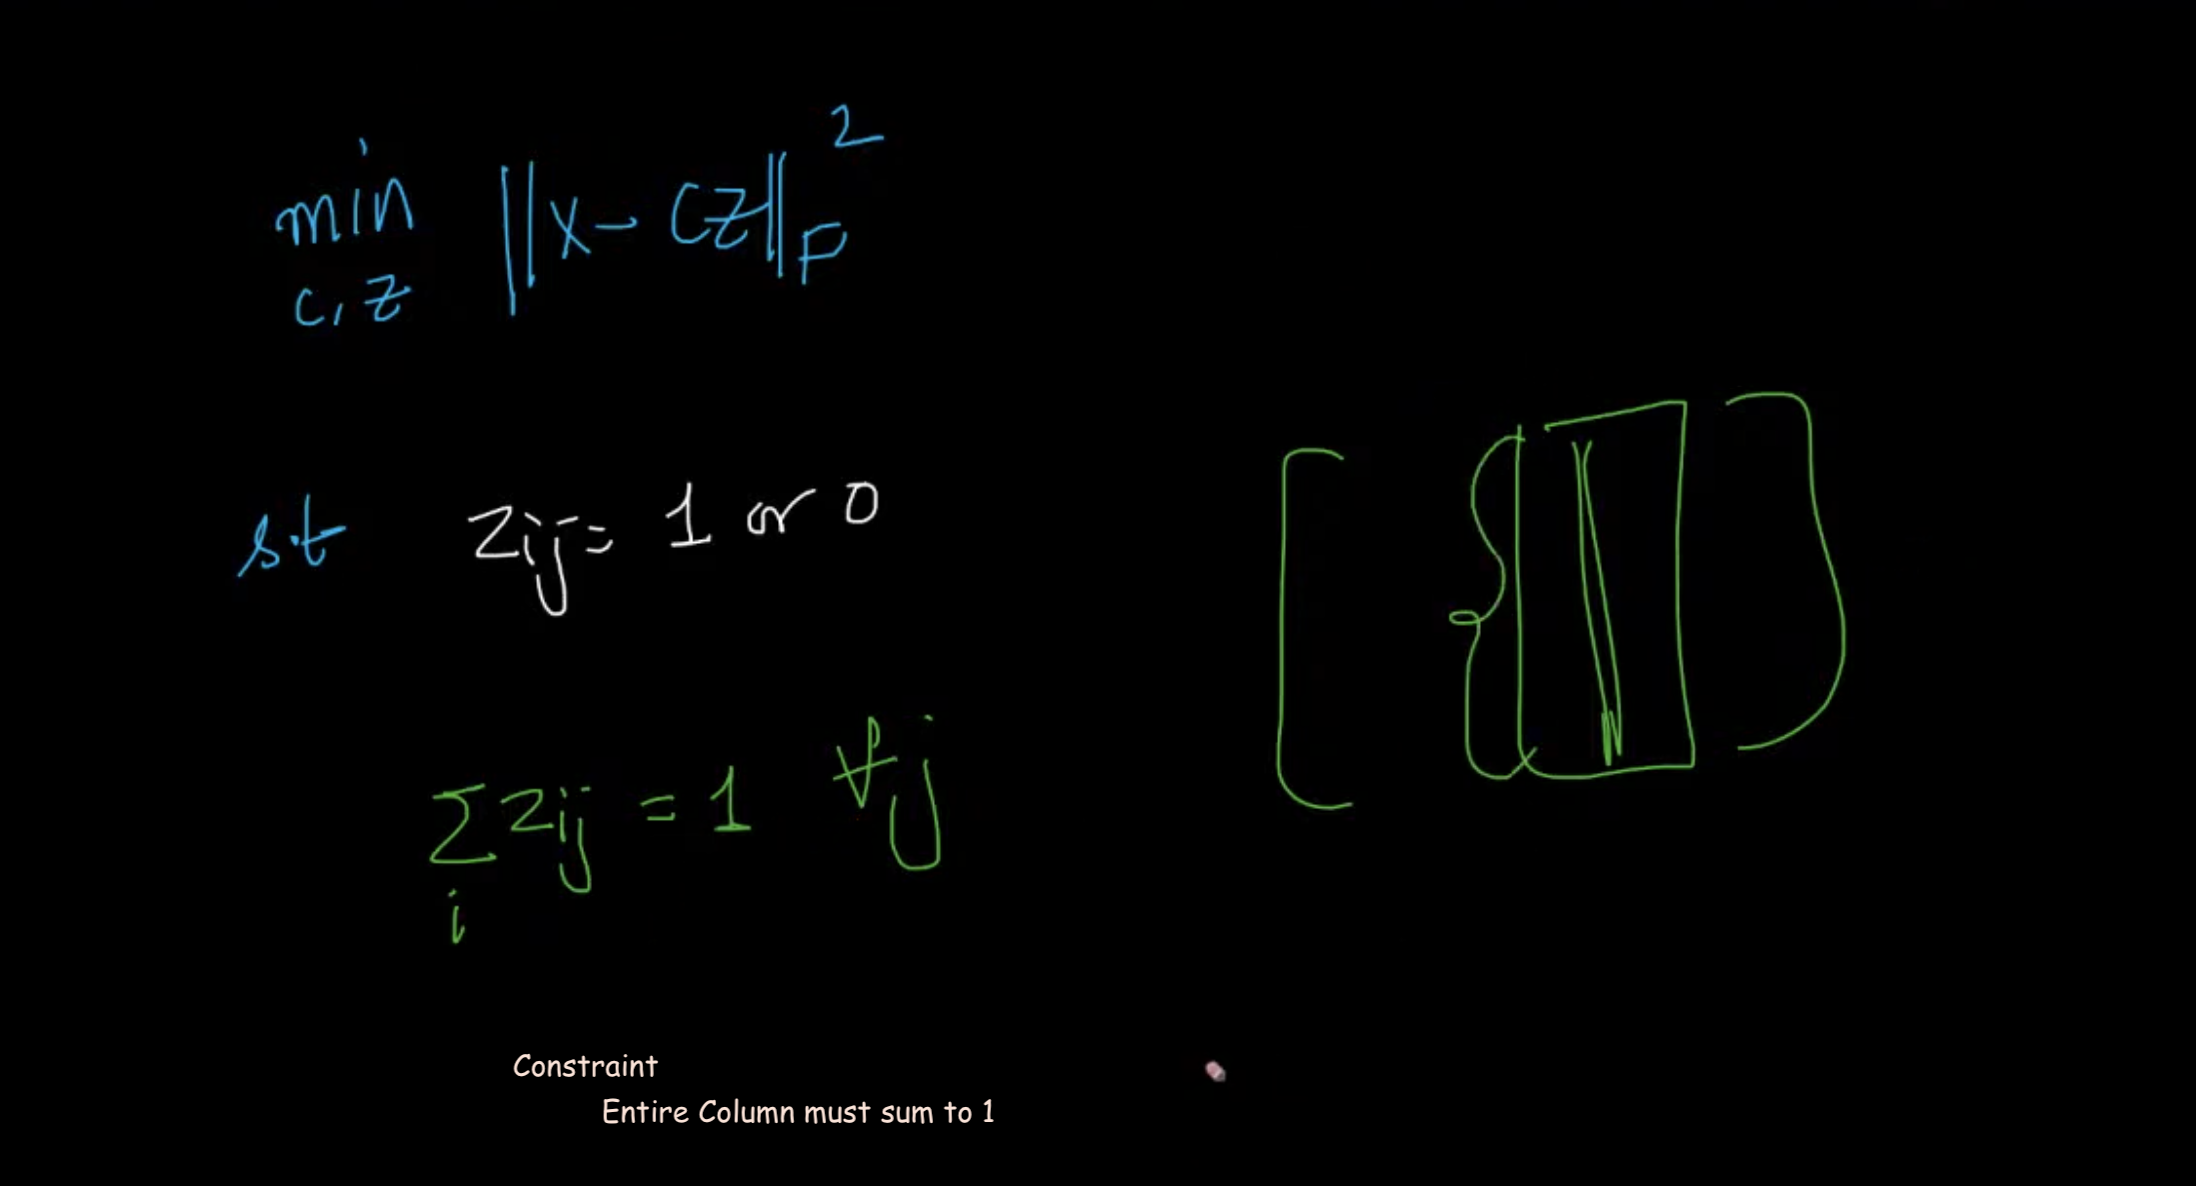 min ||X - CZ||_F^2
C, Z
s.t Zij = 1 or 0
∑ Zij = 1 ∀j
i
Constraint
Entire Column must sum to 1